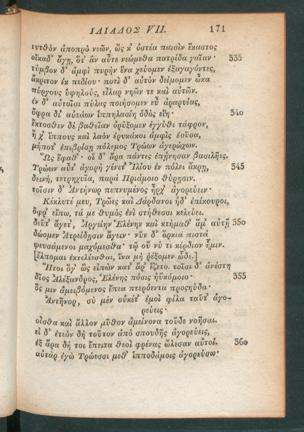 ΙΛΙΑΔΟΣ VII. 171
τυτθὸν ἀποπρὸ νεῶν, ὥς κ' ὀστέα παισὶν ἕκαστος
οἴκαδ' ἄγῃ, ὅτ' ἂν αὖτε νεώμεθα πατρίδα γαῖαν· 335
τύμβον δ' ἀμφὶ πυρὴν ἕνα χεύομεν ἐξαγαγόντες,
ἄκριτον ἐκ πεδίου· ποτὶ δ' αὐτὸν δείμομεν ὦκα
πύργους ὑψηλοὺς, εἶλαρ νηῶν τε καὶ αὐτῶν.
ἐν δ' αὐτοῖσι πύλας ποιήσομεν εὖ ἀραρυίας,
ὄφρα δι' αὐτάων ἱππηλασίη ὁδὸς εἴη· 340
ἔκτοσθεν δὲ βαθεῖαν ὀρύξομεν ἐγγύθι τάφρον,
ἥ χ' ἵππους καὶ λαὸν ἐρυκάκοι ἀμφὶς ἐοῦσα,
μήποτ' ἐπιβρίσῃ πόλεμος Τρώων ἀγερώχων.
Ὣς ἔφαθ'· οἱ δ' ἄρα πάντες ἐπῄνησαν βασιλῆες.
Τρώων αὖτ' ἀγορὴ γένετ' Ἰλίου ἐν πόλει ἄκρῃ, 345
δεινὴ, τετρηχυῖα, παρὰ Πριάμοιο θύρῃσιν.
τοῖσιν δ' Ἀντήνωρ πεπνυμένος ἦρχ' ἀγορεύειν·
Κέκλυτέ μευ, Τρῶες καὶ Δάρδανοι ἠδ' ἐπίκουροι,
ὄφρ' εἴπω, τά με θυμὸς ἐνὶ στήθεσσι κελεύει.
δεῦτ' ἄγετ', Ἀργείην Ἑλένην καὶ κτήμαθ' ἅμ' αὐτῇ 350
δώομεν Ἀτρείδῃσιν ἄγειν· νῦν δ' ὅρκια πιστὰ
ψευσάμενοι μαχόμεσθα· τῷ οὔ νύ τι κέρδιον ἡμῖν.
[ἔλπομαι ἐκτελέεσθαι, ἵνα μὴ ῥέξομεν ὧδε.]
Ἤτοι ὅγ' ὣς εἰπὼν κατ' ἄρ' ἕζετο. τοῖσι δ' ἀνέστη
δῖος Ἀλέξανδρος, Ἑλένης πόσις ἠϋκόμοιο· 355
ὅς μιν ἀμειβόμενος ἔπεα πτερόεντα προσηύδα·
Ἀντῆνορ, σὺ μὲν οὐκέτ' ἐμοὶ φίλα ταῦτ' ἀγο-
ρεύεις·
οἶσθα καὶ ἄλλον μῦθον ἀμείνονα τοῦδε νοῆσαι.
εἰ δ' ἐτεὸν δὴ τοῦτον ἀπὸ σπουδῆς ἀγορεύεις,
ἐξ ἄρα δή τοι ἔπειτα θεοὶ φρένας ὤλεσαν αὐτοί. 360
αὐτὰρ ἐγὼ Τρώεσσι μεθ' ἱπποδάμοις ἀγορεύσω·